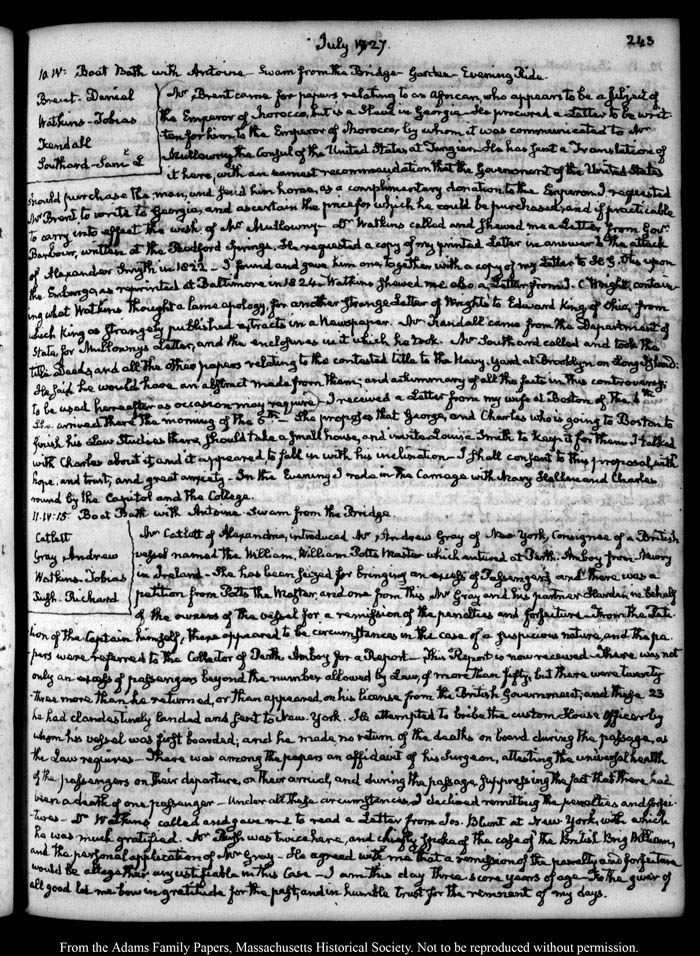 July 1827.
243
10. IV: Boat Bath with Antoine - Swam from the Bridge - Garden - Evening Ride.
Brent. Daniel
Watkins - Tobias
Kendall
Southard - Saml. L
Mr. Brent came for papers relating to an African, who appears to be a subject of
the Emperor of Morocco, but is a Slave in Georgia - He procured a Letter to be writ-
ten for him to the Emperor of Morocco, by whom it was communicated to Mr
Mullowny, the Consul of the United States at Tangier. He has sent a Translation of
it here, with an earnest recommendation that the Government of the United States
should purchase the man, and send him home, as a complimentary donation to the Emperor. I requested
Mr Brent to write to Georgia, and ascertain the price for which he could be purchased, and if practicable
to carry into effect the wish of Mr Mullowny - Dr Watkins called and shewed me a Letter from Govr.
Barbour, written at the Bedford Springs. He requested a copy of my printed Letter in answer to the attack
of Alexander Smyth in 1822 - I found and gave him one, together with a copy of my Letter to H. G. Otis upon
the Embargo, as reprinted at Baltimore in 1824. Watkins shewed me also a Letter from J. C. Wright, contain-
ing what Watkins thought a lame apology, for another strange Letter of Wright's to Edward King of Ohio, from
which King as strangely published extracts in a Newspaper. Mr. Kendall came from the Department of
State for Mullowny's Letter, and the enclosures in it which he took. Mr Southard called and took the
title Deeds, and all the other papers relating to the contested title to the Navy Yard at Brooklyn on Long Island:
He said he would have an abstract made from them; and a summary of all the facts in this controversy;
to be used hereafter as occasion may require. I received a Letter from my wife at Boston of the 6th.
She arrived there the morning of the 5th. - She proposes that George, and Charles who is going to Boston to
finish his Law Studies there, should take a small house, and invite Louisa Smith to keep it for them. I talked
with Charles about it, and it appeared to fall in with his inclination - I shall consent to this proposal with
hope, and trust, and great anxiety - In the Evening I rode in the Carriage with Mary Hellen and Charles
round by the Capitol and the College.
11. IV: 15. Boat Bath with Antoine. Swam from the Bridge.
Catlett
Gray Andrew
Watkins - Tobias
Rush. Richard
Mr Catlett of Alexandria, introduced Mr. Andrew Gray of New York, Consignee of a British
vessel named the William, William Potts Master which entered at Perth-Amboy from Newry
in Ireland - She has been seized for bringing an excess of Passengers and there was a
petition from Potts the Master, and one from this Mr Gray and his partner Harden in behalf
of the owners of the vessel for a remission of the penalties and forfeiture - From the Peti-
tion of the Captain himself, there appeared to be circumstances in the case of a suspicious nature, and the pa-
pers were referred to the Collector of Perth Amboy for a Report - This Report is now received - There was not
only an excess of passengers beyond the number allowed by Law, of more than fifty; but there were twenty
three more than he returned, or than appeared, on his license from the British Government; and these 23
he had clandestinely landed and sent to New York. He attempted to bribe the custom House Officer by
whom his vessel was first boarded; and he made no return of the deaths on board during the passage, as
the Law requires - There was among the papers an affidavit of his Surgeon, attesting the universal health
of the passengers on their departure, on their arrival, and during the passage, suppressing the fact that there had
been a death of one passenger - Under all these circumstances, I declined remitting the penalties and forfei-
tures - Dr Watkins called and gave me to read a Letter from Jos. Blunt at New York, with which
he was much gratified. Mr Rush was twice here, and chiefly spoke of the case of the British Brig William,
and the personal application of Mr Gray - He agreed with me that a remission of the penalty and forfeiture
would be altogether unjustifiable in this Case - I am this day three score years of age - To the giver of
all good let me bow in gratitude for the past, and in humble trust for the remnant of my days.
From the Adams Family Papers, Massachusetts Historical Society. Not to be reproduced without permission.